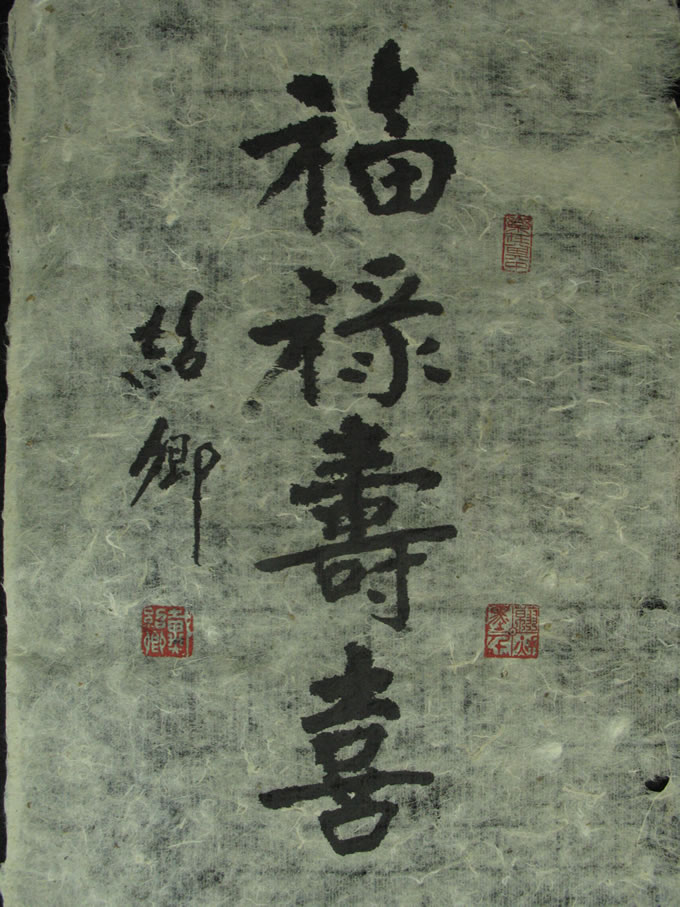 福祿壽喜
紹卿